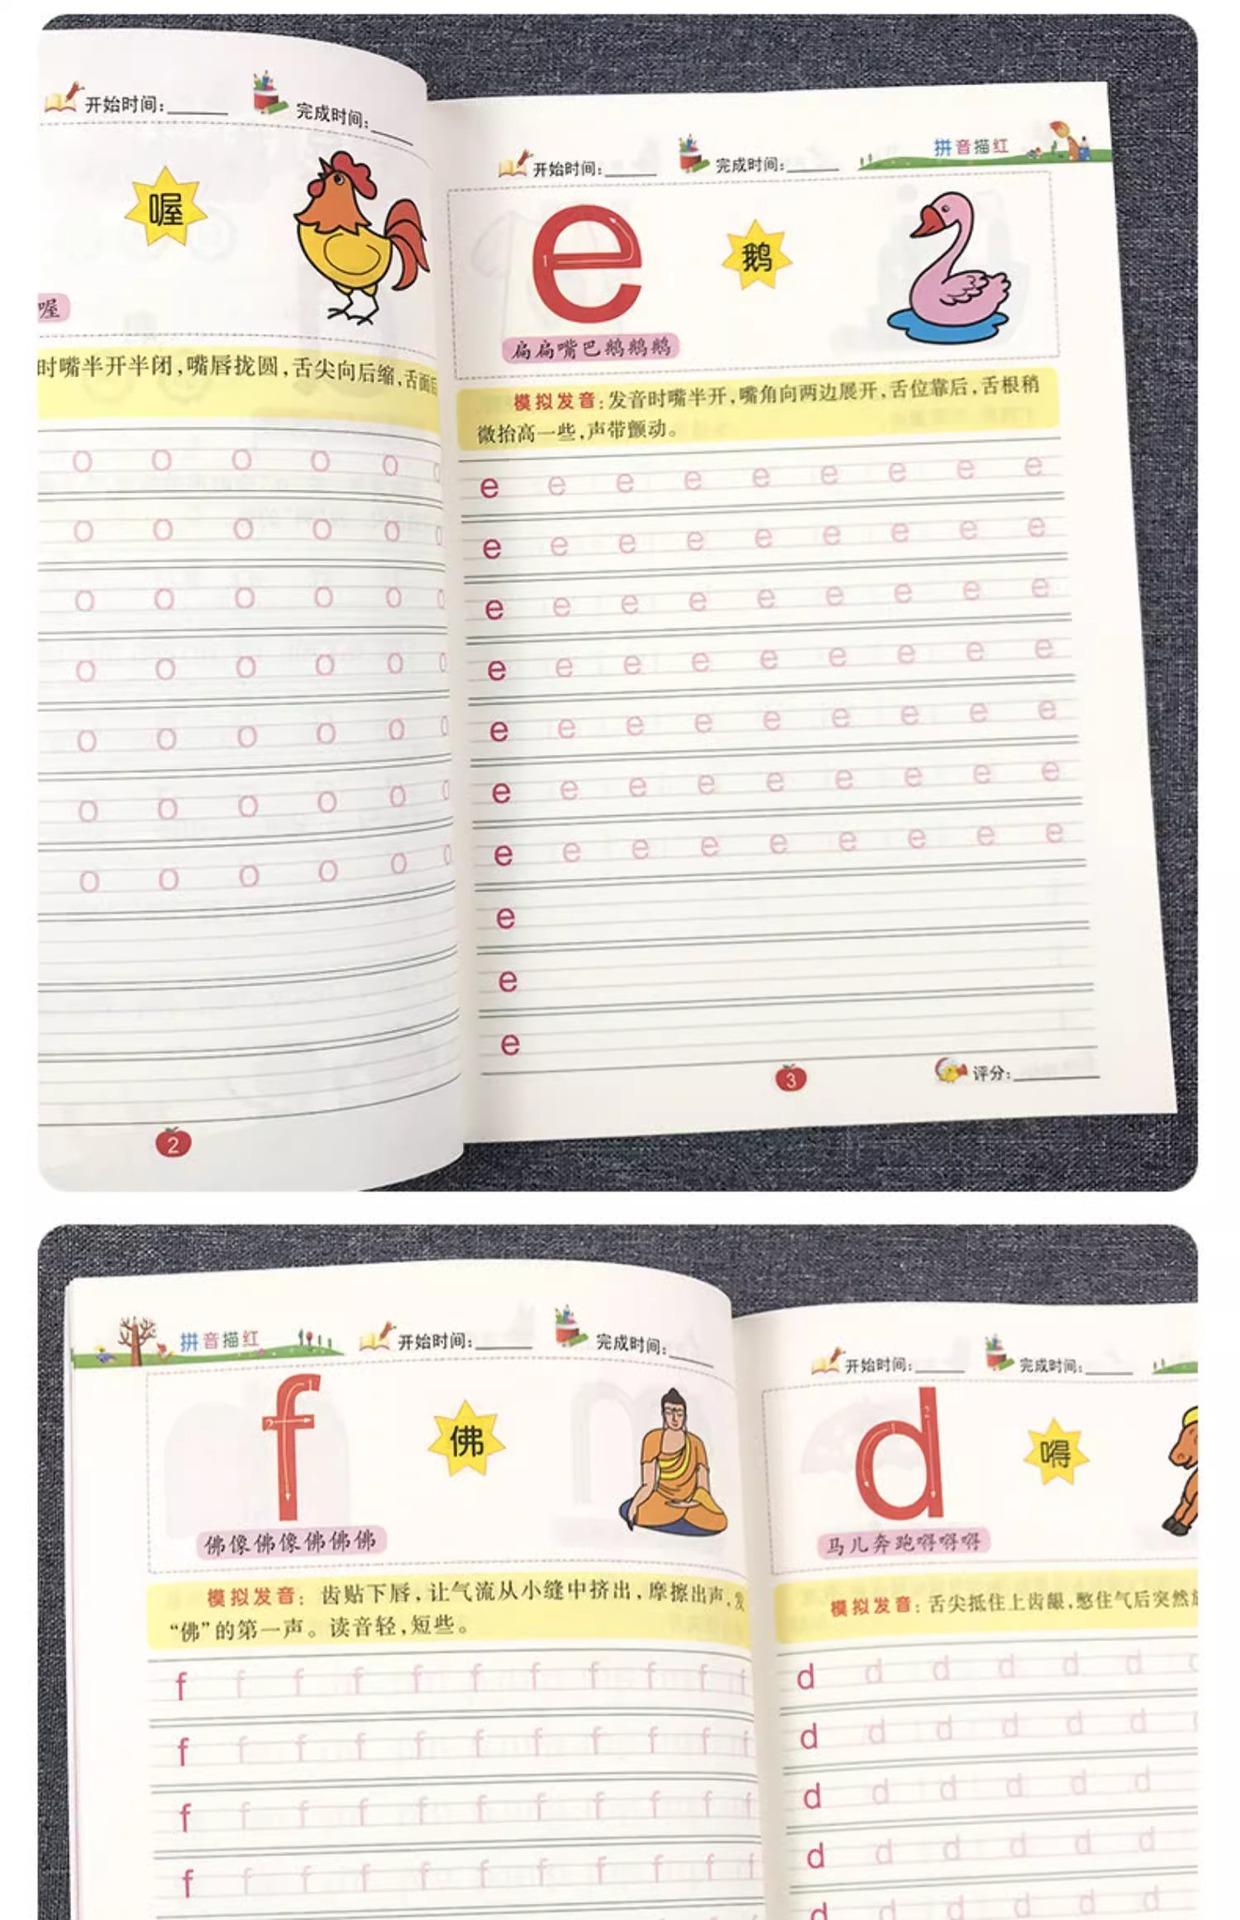 开始时间:
完成时间:
喔
喔
时嘴半开半闭,嘴唇拢圆,舌尖向后缩,舌面后
o o o o o o
o o o o o o
o o o o o o
o o o o o o
o o o o o o
o o o o o o
o o o o o o
2
开始时间:
完成时间:
拼音描红
e
鹅
扁扁嘴巴鹅鹅鹅
模拟发音:发音时嘴半开,嘴角向两边展开,舌位靠后,舌根稍
微抬高一些,声带颤动。
e e e e e e e e e
e e e e e e e e e
e e e e e e e e e
e e e e e e e e e
e e e e e e e e e
e e e e e e e e e
e e e e e e e e e
e
e
e
3
评分:
拼音描红
开始时间:
完成时间:
f
佛
佛像佛像佛佛佛
模拟发音:齿贴下唇,让气流从小缝中挤出,摩擦出声,发
“佛”的第一声。读音轻,短些。
f f f f f f f f f f f
f f f f f f f f f f f
f f f f f f f f f f f
f f f f f f f f f f f
开始时间:
完成时间:
d
嘚
马儿奔跑嘚嘚嘚
模拟发音:舌尖抵住上齿龈,憋住气后突然放
d d d d d d
d d d d d d
d d d d d d
d d d d d d
d d d d d d